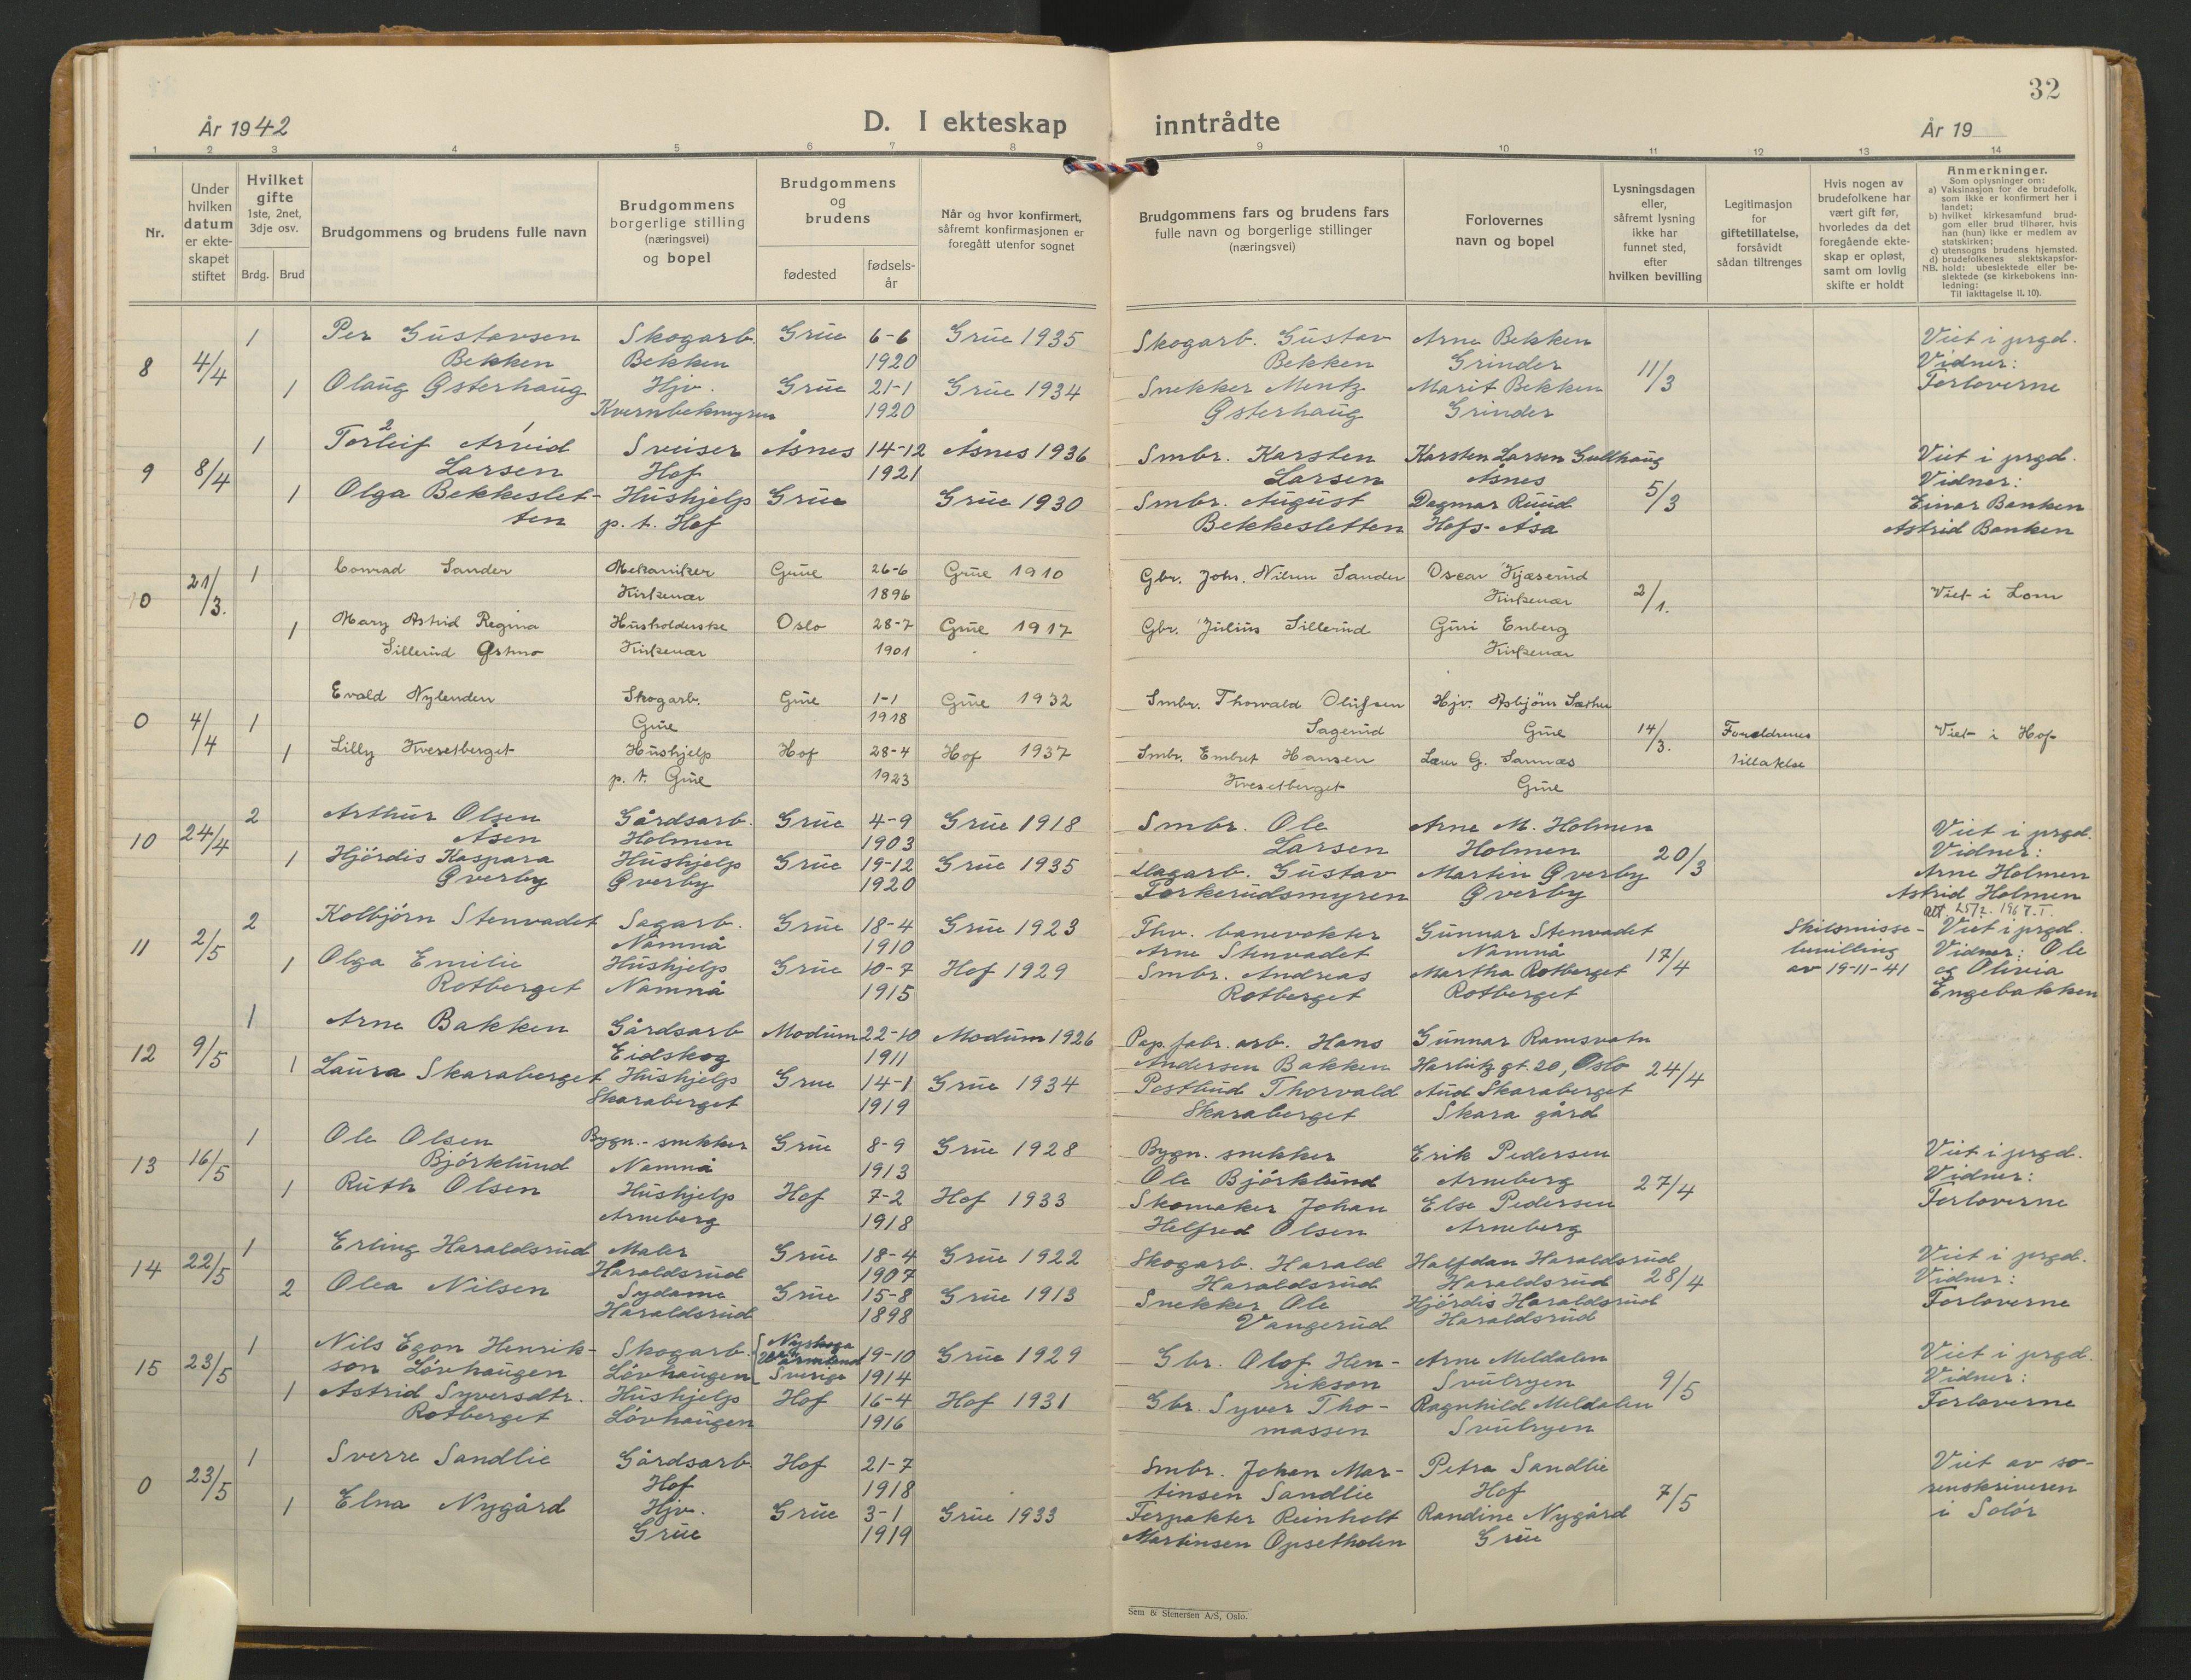 32
År 1942
D. I ekteskap inntrådte
År 19
1 2 3 4 5 6 7 8 9 10 11 12 13 14
Nr.
Under hvilken datum er ekte-skapet stiftet
Hvilket gifte 1ste, 2net, 3dje osv.
Brdg. Brud
Brudgommens og brudens fulle navn
Brudgommens borgerlige stilling (næringsvei) og bopel
Brudgommens og brudens
fødested
fødsels-år
Når og hvor konfirmert, såfremt konfirmasjonen er foregått utenfor sognet
Brudgommens fars og brudens fars fulle navn og borgerlige stillinger (næringsvei)
Forlovernes navn og bopel
Lysningsdagen eller, såfremt lysning ikke har funnet sted, efter hvilken bevilling
Legitimasjon for giftetillatelse, forsåvidt sådan tiltrenges
Hvis nogen av brudefolkene har vært gift før, hvorledes da det foregående ekte-skap er opløst, samt om lovlig skifte er holdt
Anmerkninger.
Som oplysninger om:
a) Vaksinasjon for de brudefolk, som ikke er konfirmert her i landet;
b) hvilket kirkesamfund brud-gom eller brud tilhører, hvis han (hun) ikke er medlem av statskirken;
c) utensogns brudens hjemsted.
d) brudefolkenes slektskapsfor-
NB. hold: ubeslektede eller be-slektede (se kirkebokens inn-ledning:
Til iakttagelse II. 10).
1 Per Gustavsen Skogarb. Grue 6-6 Grue 1935 Skogarb. Gustav Arne Bekken Viet i prgd.
8 4/4 Bekken Bekken 1920 Bekken Grinder 11/3 Vidner:
1 Olaug Østerhaug Hjv. Grue 21-1 Grue 1934 Snekker Mentz Marit Bekken Forloverne
Kvernbekmyren 1920 Østerhaug Grinder
2 1
1 Torleif Arvid Sveiser Åsnes 14-12 Åsnes 1936 Smbr. Karsten Karsten Larsen Gullhaug Viet i prgd.
9 8/4 Larsen Hof 1921 Larsen Åsnes Vidner:
1 Olga Bekkeslet- Hushjelp Grue Grue 1930 Smbr. August Dagmar Ruud 5/3 Einar Banken
ten p. t. Hof Bekkesletten Hofs-Åsa Astrid Banken
1 Conrad Sander Mekaniker Grue 26-6 Grue 1910 Gbr. Johs. Nilsen Sander Oscar Kjæserud
10 21/3. Kirkenær 1896 Kirkenær 2/1. Viet i Lom
1 Mary Astrid Regina Husholderske Oslo 28-7 Grue 1917 Gbr. Julius Sillerud Guri Enberg
Sillerud Østmo Kirkenær 1901 Kirkenær
Evald Nylenden Skogarb. Grue 1-1 Grue 1932 Smbr. Thorvald Olufsen Hjv. Asbjörn Sæther
0 4/4 1 Grue 1918 Sagerud Grue 14/3. Foreldrenes Viet i Hof
1 Lilly Kvesetberget Hushjelp Hof 28-4 Hof 1937 Smbr. Embret Hansen Lærer G. Sannæs tillatelse
p. t. Grue 1923 Kvesetberget Grue
2 Arthur Olsen Gårdsarb. Grue 4-9 Grue 1918 Smbr. Ole Arne M. Holmen Viet i prgd.
10 24/4 Åsen Holmen 1903 Larsen Holmen Vidner:
1 Hjördis Kaspara Hushjelp Grue 19-12 Grue 1935 Dagarb. Gustav Martin Øverby 20/3 Arne Holmen
Øverby Øverby 1920 Torkerudsmyren Øverby Astrid Holmen
att. 25/2. 1967. T.
2 Kolbjörn Stenvadet Sagarb. Grue 18-4 Grue 1923 Fhv. banevokter Gunnar Stenvadet Skilsmisse- Viet i prgd.
11 2/5 Namnå 1910 Arne Stenvadet Namnå bevilling Vidner: Ole
1 Olga Emilie Hushjelp Grue 10-7 Hof 1929 Smbr. Andreas Martha Rotberget 17/4 av 19-11-41 og Olivia
Rotberget Namnå 1915 Rotberget Rotberget Engebakken
1 Arne Bakken Gårdsarb Modum 22-10 Modum 1926 Pap. fabr. arb. Hans Gunnar Ramsvatn
12 9/5 Eidskog 1911 Andersen Bakken Harbitz gt. 20, Oslo 24/4
1 Laura Skaraberget Hushjelp Grue 14-1 Grue 1934 Postbud Thorvald Aud Skaraberget
Skaraberget 1919 Skaraberget Skara gård
1 Ole Olsen Bygn.-snekker Grue 8-9 Grue 1928 Bygn. snekker Erik Pedersen Viet i prgd.
13 16/5 Björklund Namnå 1913 Ole Björklund Arneberg Vidner:
1 Ruth Olsen Hushjelp Hof 7-2 Hof 1933 Skomaker Johan Else Pedersen 27/4 Forloverne
Arneberg 1918 Helfred Olsen Arneberg
1 Erling Haraldsrud Maler Grue 18-4 Grue 1922 Skogarb. Harald Halfdan Haraldsrud Viet i prgd.
14 22/5 Haraldsrud 1907 Haraldsrud Haraldsrud 28/4 Vidner:
2 Olea Nilsen Sydame Grue 15-8 Grue 1913 Snekker Ole Hjördis Haraldsrud Forloverne
Haraldsrud 1898 Vangerud Haraldsrud
1 Nils Egon Henrik- Skogarb. Nyskoga Värmland 19-10 Grue 1929 Gbr. Olof Hen- Arne Meldalen Viet i prgd.
15 23/5 son Lövhaugen Lövhaugen Sverige 1914 rikson Svulryen Vidner:
1 Astrid Syversdtr. Hushjelp Hof 16-4 Hof 1931 Gbr. Syver Tho- Ragnhild Meldalen 9/5 Forloverne
Rotberget Lövhaugen 1916 massen Svulryen
1 Sverre Sandlie Gårdsarb. Hof 21-7 Smbr. Johan Mar- Petra Sandlie Viet av so-
0 23/5 Hof 1918 tinsen Sandlie Hof renskriveren
1 Elna Nygård Hjv. Grue 3-1 Grue 1933 Forpakter Reinholt Randine Nygård 7/5 i Solör
Grue 1919 Martinsen Opsetholen Grue
Sem & Stenersen A/S, Oslo.